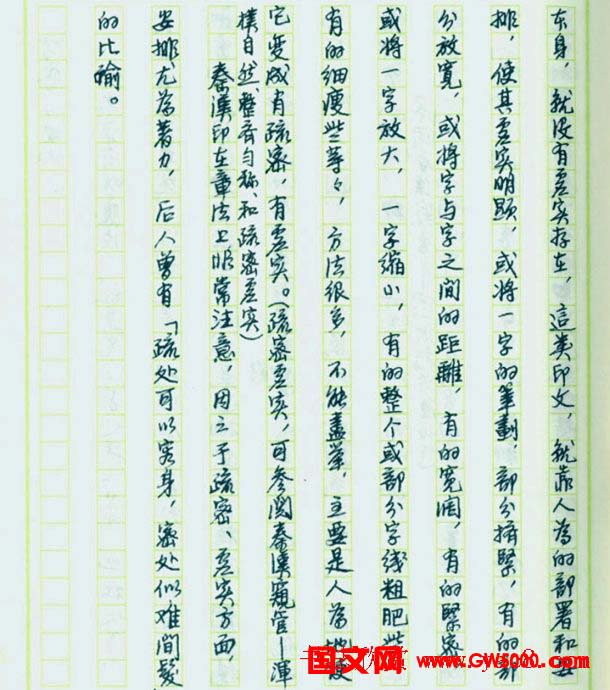 本身，就没有虚实存在，這类印文，就靠人為的部署和安
排，使其虚实明顯，或将一字的筆劃，部分擠緊，有的部
分放寬，或将字与字之间的距離，有的寬闊，有的緊密
或将一字放大，一字缩小，有的整个或部分字线粗肥些
有的细瘦些等々，方法很多，不能盡举，主要是人為地使
它变成有疏密，有虚实。（疏密虚实，可参阅秦漢窥管—渾
樸自然、整齐匀称、和疏密虚实）
秦漢印在章法上非常注意，因之于疏密、虚实方面，
安排尤為著力，后人曾有「疏处可以容身，密处似难间髮
的比喻。
国文网 www.GW5000.com